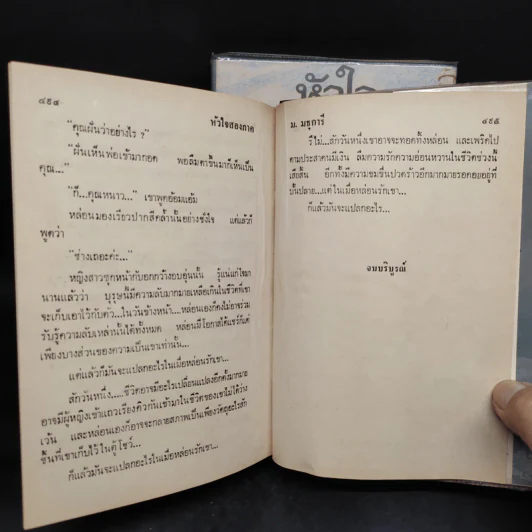 หัวใจ
๔๙๔
หัวใจสองภาค
“คุณฝันว่าอย่างไร ?”
“ฝันเห็นพ่อเข้ามากอด พอลืมตาขึ้นมาก็เห็นเป็น
คุณ...”
“ก็...คุณหนาว...” เขาพูดอ้อมแอ้ม
หล่อนมองเรียวปากสีคล้ำนั้นอย่างชั่งใจ แต่แล้วก็
พูดว่า
“ช่างเถอะค่ะ...”
หญิงสาวซุกหน้ากับอกกว้างอบอุ่นนั้น รู้แน่แก่ใจมา
นานแล้วว่า บุรุษนี้มีความลับมากมายเหลือเกินในชีวิตที่เขา
จะเก็บเอาไว้กับตัว...ในวันข้างหน้า....หล่อนเองก็คงไม่อาจร่วม
รับรู้ความลับเหล่านั้นได้ทั้งหมด หล่อนมีโอกาสได้แชร์ก็แต่
เพียงบางส่วนของความเป็นเขาเท่านั้น...
แต่แล้วก็มันจะแปลกอะไรในเมื่อหล่อนรักเขา...
สักวันหนึ่ง.....ชีวิตอาจมีอะไรเปลี่ยนแปลงอีกตั้งมากมาย
อาจมีผู้หญิงเข้าแถวเรียงคิวกันเข้ามาในชีวิตของเขาไม่ได้ว่าง
เว้น และหล่อนเองก็อาจจะกลายสภาพเป็นเพียงวัตถุอะไรสัก
ชิ้นที่เขาเก็บไว้ในตู้โชว์...
ก็แล้วมันจะแปลกอะไรในเมื่อหล่อนรักเขา...
ม. มธุการี
๔๙๕
รึไม่...สักวันหนึ่งเขาอาจจะทอดทิ้งหล่อน และเพริดไป
ตามประสาคนมีเงิน ลืมความรักความอ่อนหวานในชีวิตช่วงนี้
เสียสิ้น อีกทั้งมีความขมขื่นปวดร้าวอีกมากมายรอคอยอยู่ที่
บั้นปลาย...แต่ในเมื่อหล่อนรักเขา...
ก็แล้วมันจะแปลกอะไร...
จบบริบูรณ์